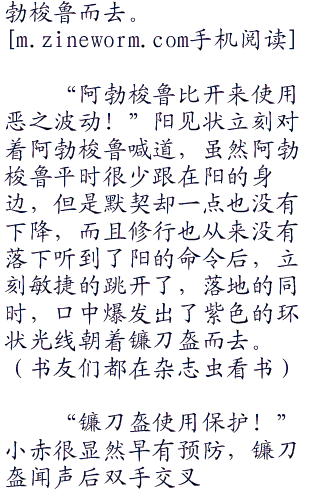 勃梭鲁而去。
[m.zineworm.com手机阅读]
“阿勃梭鲁比开来使用
恶之波动！”阳见状立刻对
着阿勃梭鲁喊道，虽然阿勃
梭鲁平时很少跟在阳的身
边，但是默契却一点也没有
下降，而且修行也从来没有
落下听到了阳的命令后，立
刻敏捷的跳开了，落地的同
时，口中爆发出了紫色的环
状光线朝着镰刀盔而去。
（书友们都在杂志虫看书）
“镰刀盔使用保护！”
小赤很显然早有预防，镰刀
盔闻声后双手交叉